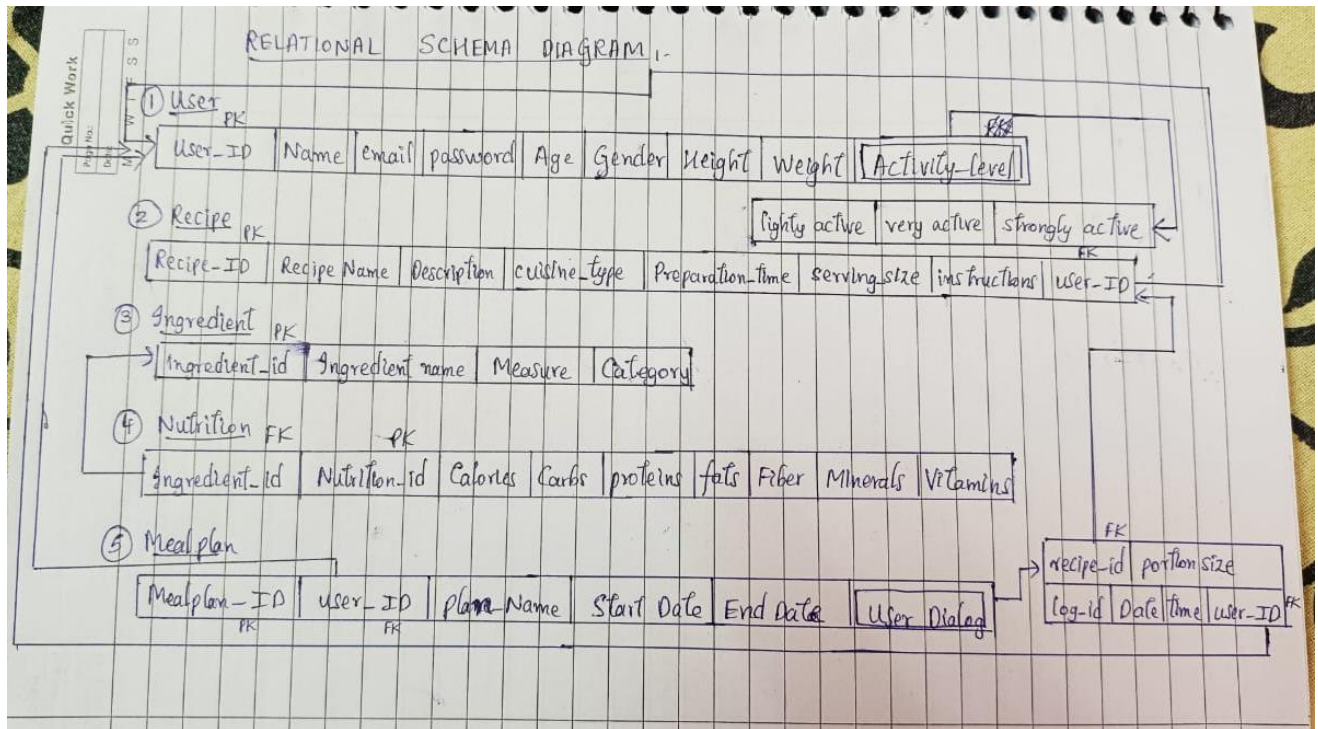 RELATIONAL SCHEMA DIAGRAM :-
Quick Work
Page No.:
Date:
M T W T F S S
① User
PK
User_ID Name email password Age Gender Height Weight Activity-level
lighty active very active strongly active
② Recipe PK
FK
Recipe-ID Recipe Name Description cuisine_type Preparation_time serving size instructions user-ID
③ Ingredient PK
Ingredient_id Ingredient name Measure Category
④ Nutrition FK PK
Ingredient_id Nutrition_id Calories Carbs proteins fats Fiber Minerals Vitamins
⑤ Mealplan
FK
recipe-id portion size
Mealplan-ID user-ID plan-Name Start Date End Date User Dialog
log-id Date time user-ID FK
PK FK